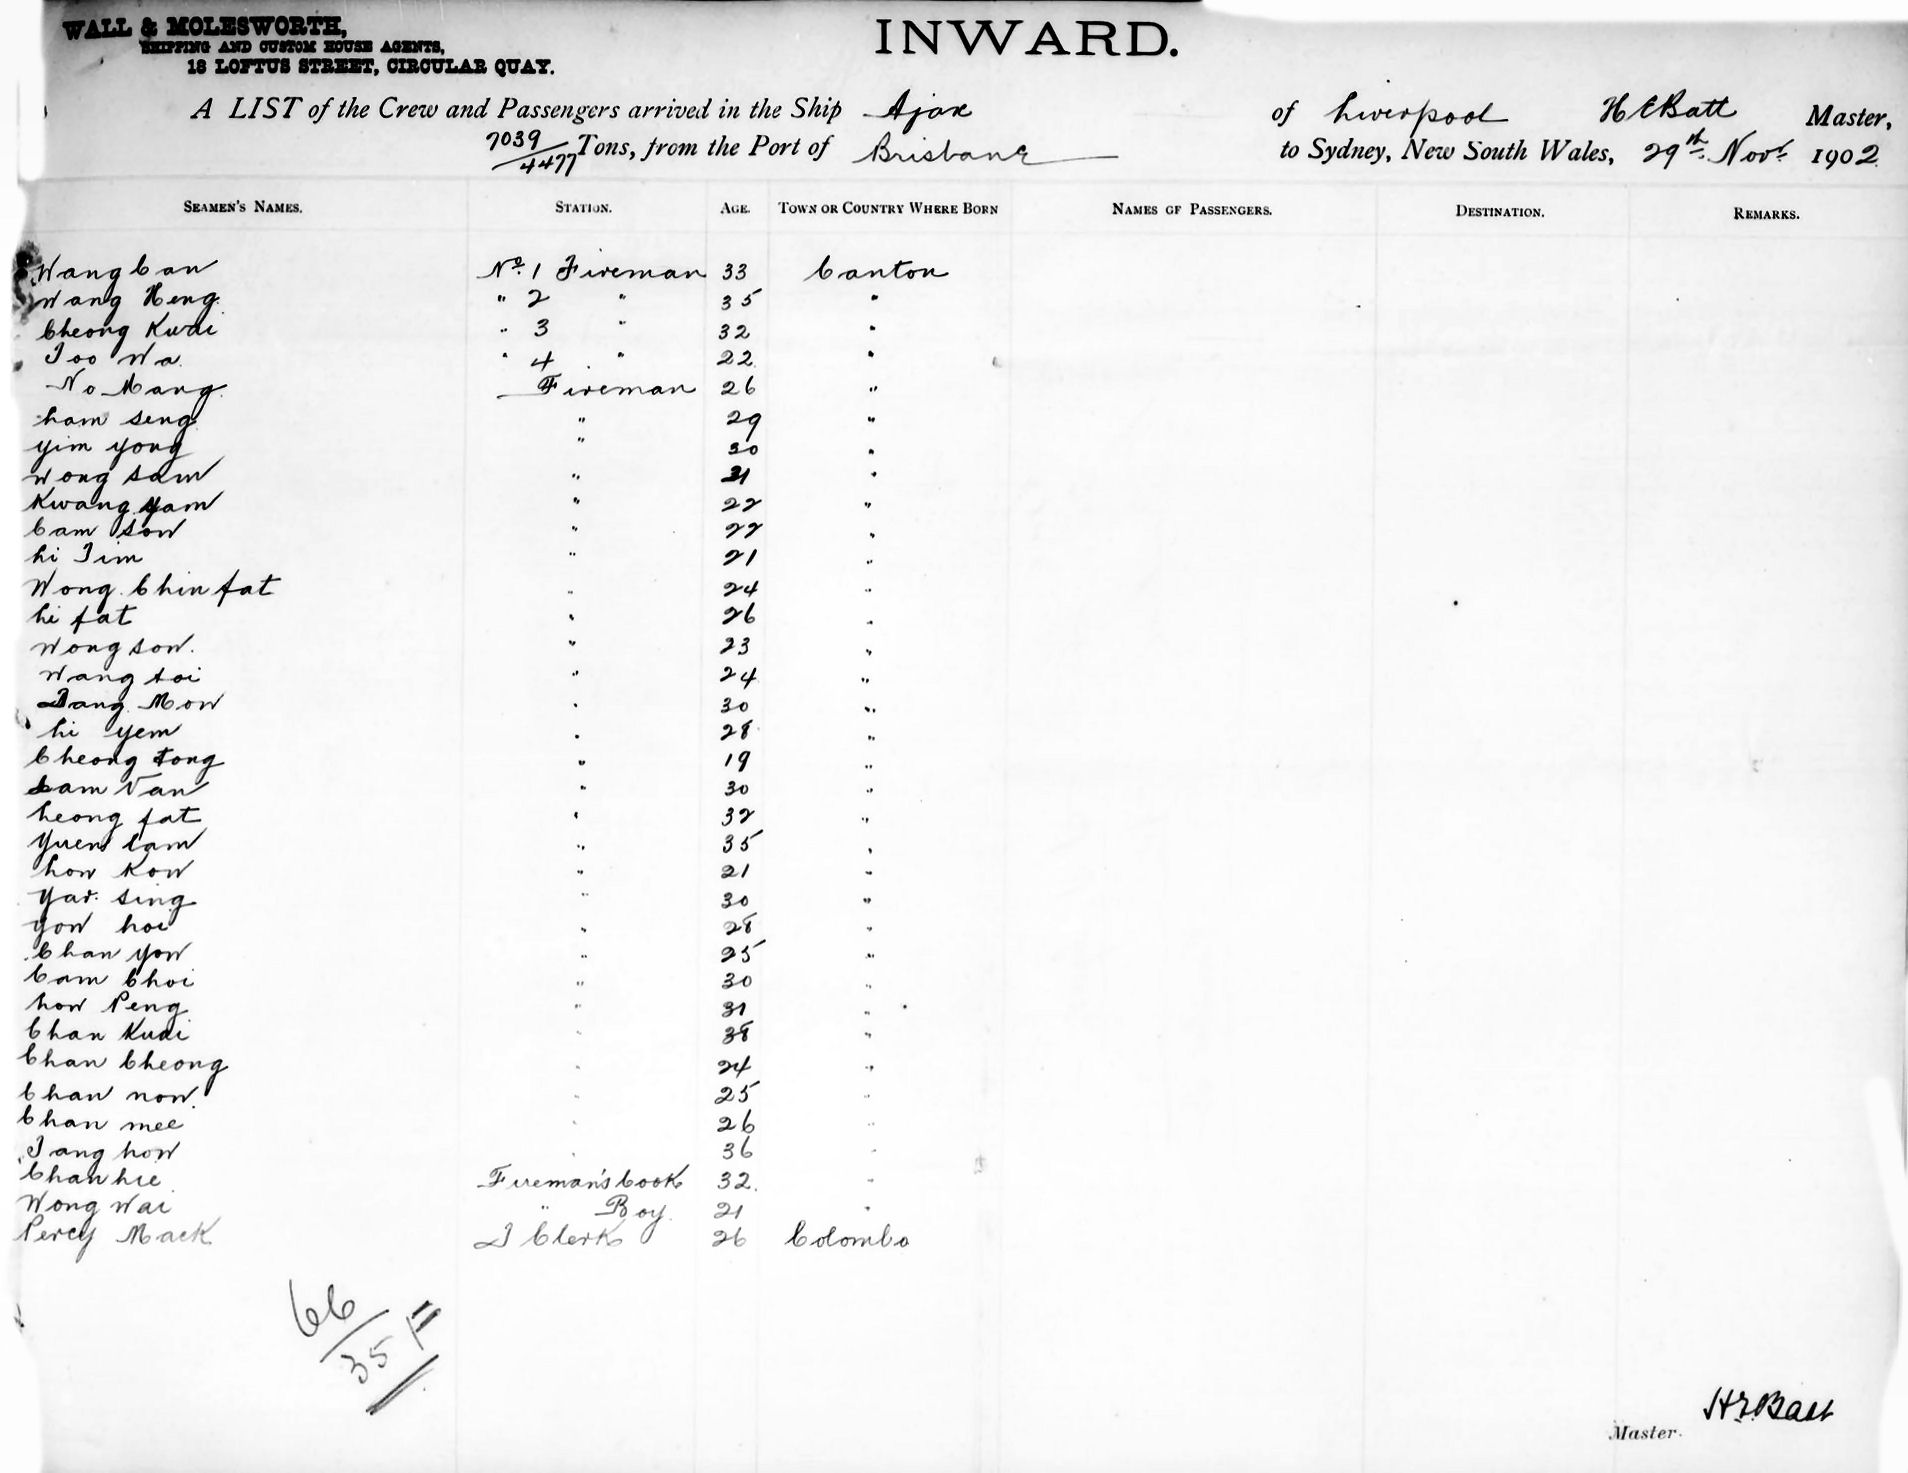 WALL & MOLESWORTH,
SHIPPING AND CUSTOM HOUSE AGENTS,
18 LOFTUS STREET, CIRCULAR QUAY.
INWARD.
A LIST of the Crew and Passengers arrived in the Ship Ajax of Liverpool H E Batt Master,
7039/4477 Tons, from the Port of Brisbane to Sydney, New South Wales, 29th Novr 1902
SEAMEN'S NAMES. STATION. AGE. TOWN OR COUNTRY WHERE BORN NAMES OF PASSENGERS. DESTINATION. REMARKS.
Wang Can No. 1 Fireman 33 Canton
Wang Heng " 2 " 35 "
Cheong Kwai " 3 " 32 "
Too Wa " 4 " 22 "
No Mang Fireman 26 "
Lam Seng " 29 "
Yim Yong " 30 "
Wong Sam " 31 "
Kwang Yam " 22 "
Cam Son " 22 "
Li Tim " 21 "
Wong Chin fat " 24 "
Li fat " 26 "
Wong Son " 23 "
Wang Soi " 24 "
Tang Mow " 30 "
Li Yem " 28 "
Cheong Tong " 19 "
Lam Van " 30 "
Leong fat " 32 "
Yuen Cam " 35 "
Low Kow " 21 "
Sing " 30 "
Yow Loi " 28 "
Chan Yow " 25 "
Cam Choi " 30 "
Low Peng " 31 "
Chan Kuai " 38 "
Chan Cheong " 24 "
Chan now " 25 "
Chan mee " 26 "
Tang Low " 36 "
Chan Lee Fireman's Cook 32 "
Wong Wai " Boy 21 "
Percy Mack Clerk 26 Colombo
66
35
H E Batt
Master.